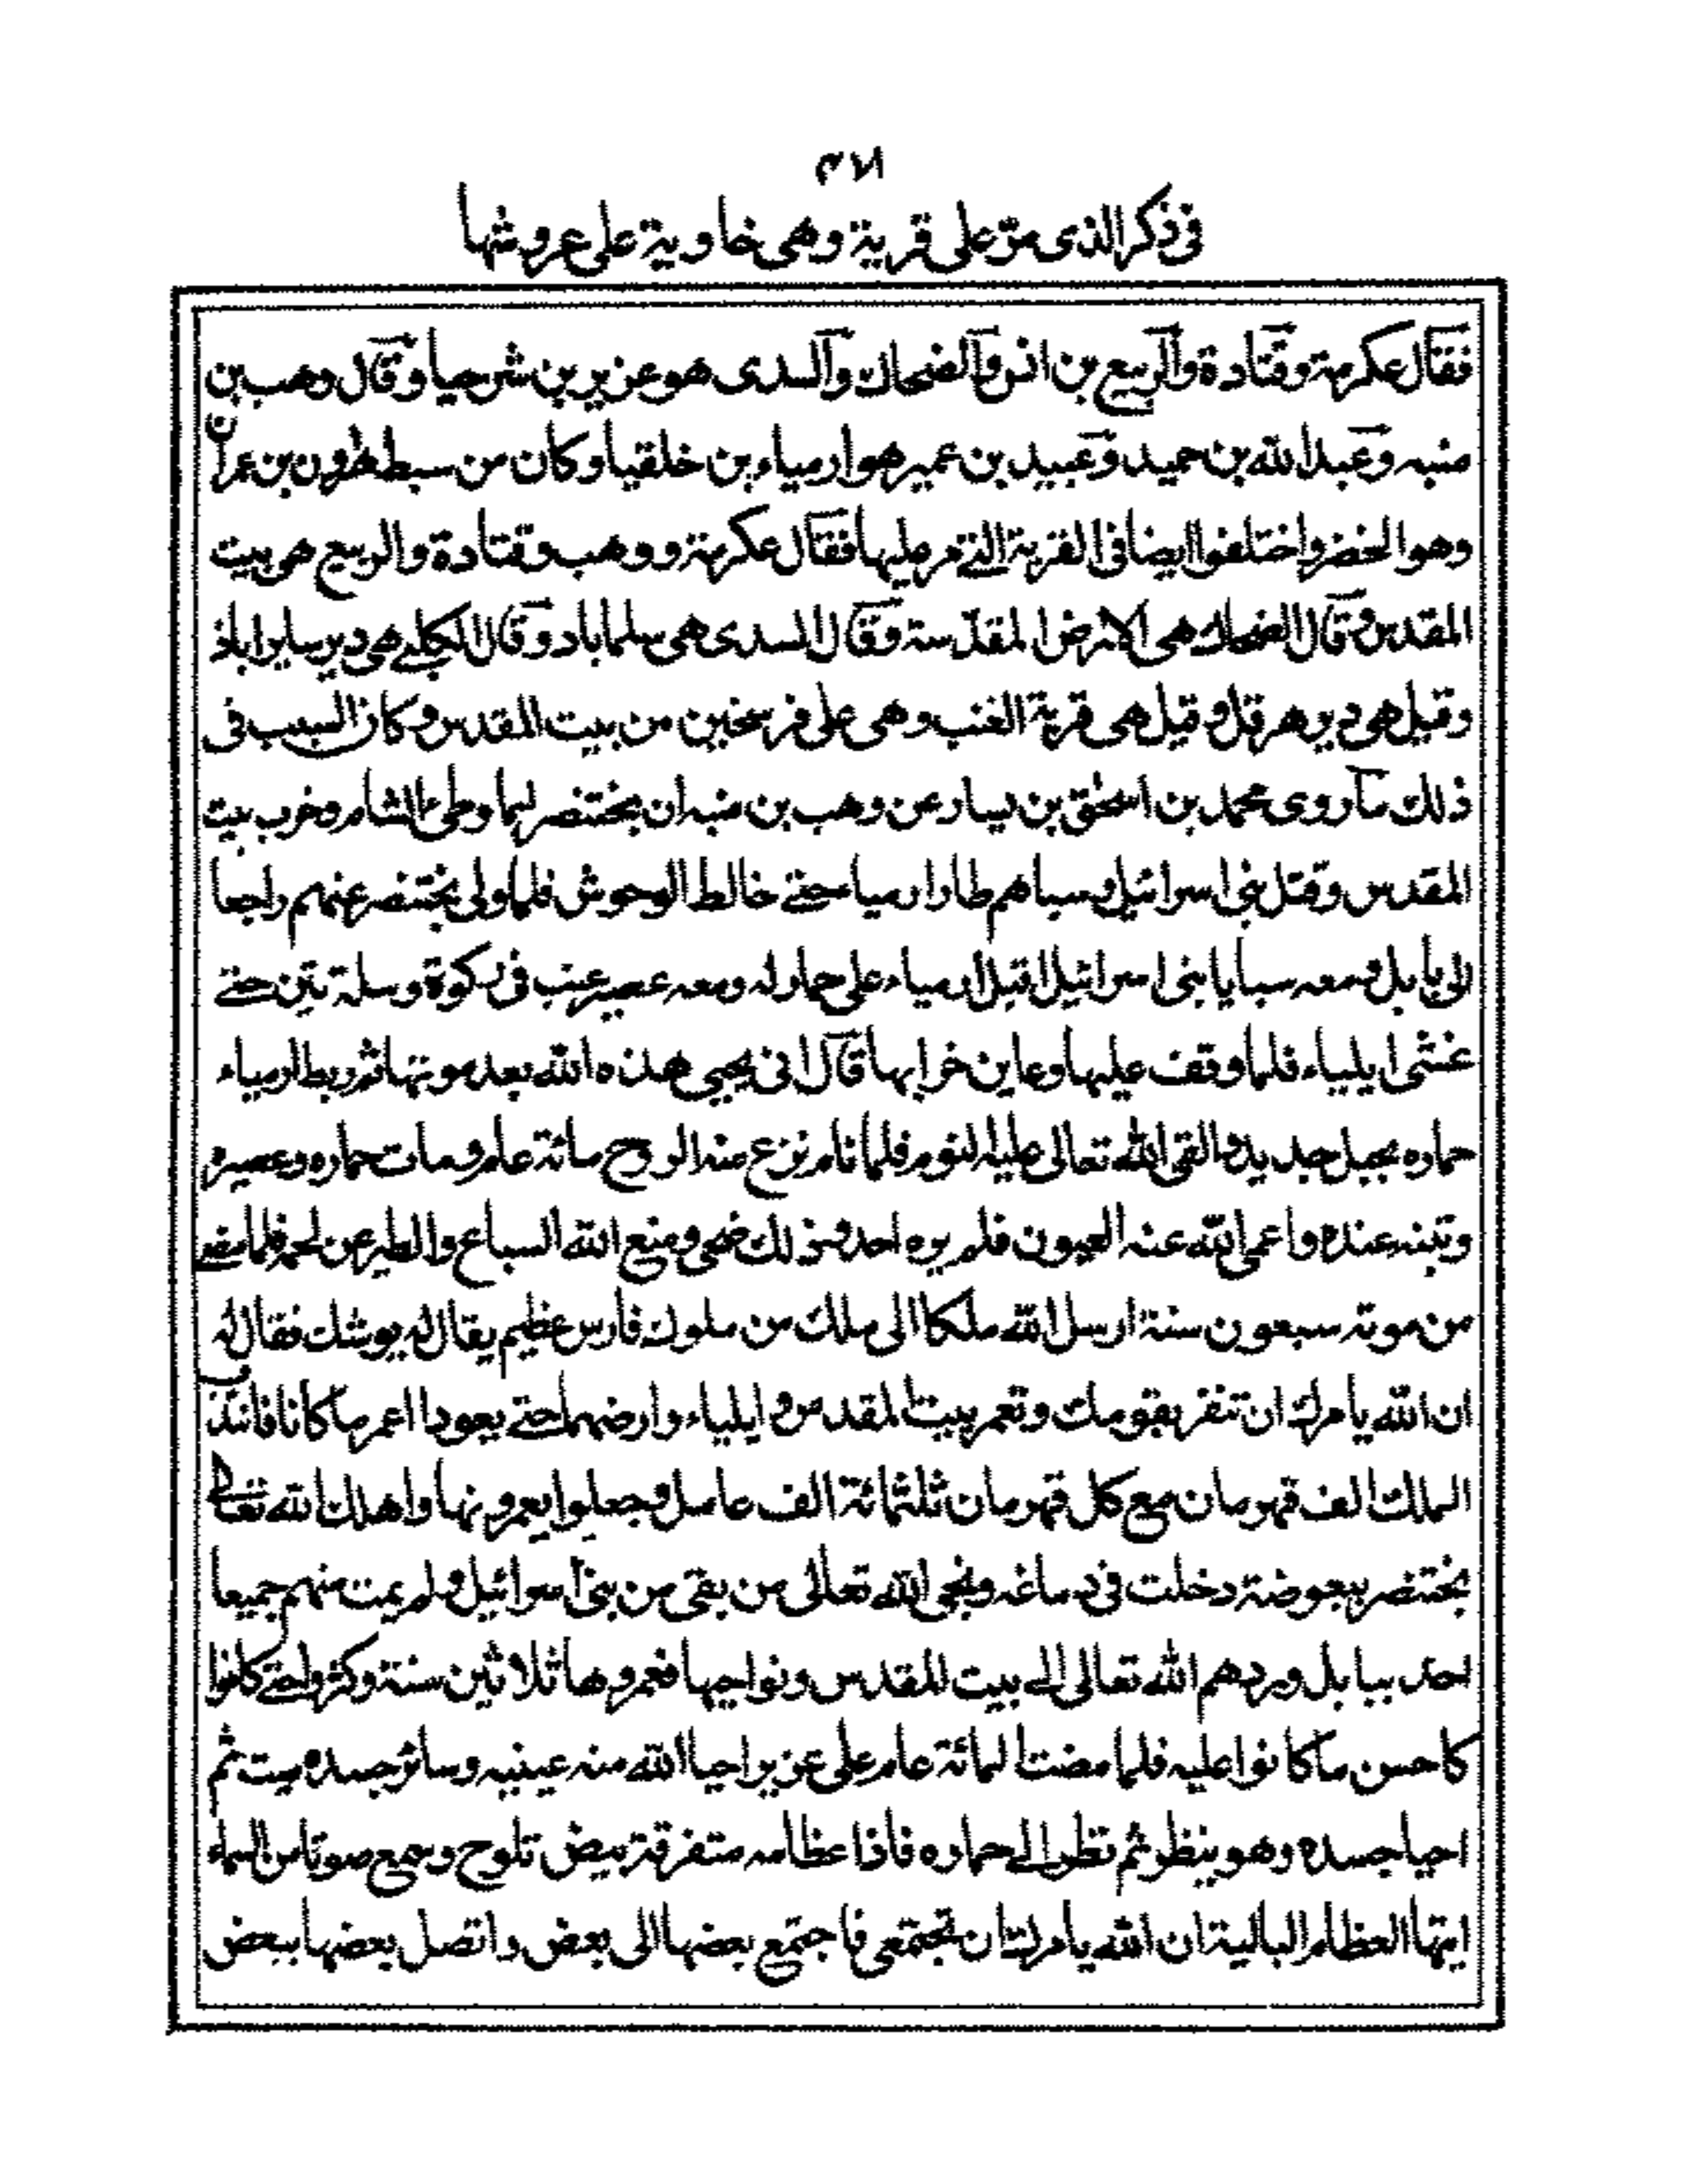 ٣٧١
فى ذكر الذى مرّ على قرية وهى خاوية على عروشها
فقال عكرمة وقتادة والربيع بن انس والضحاك والسدى هو عزير بن شرحيا وقال وهب بن
منبه وعبد الله بن حميد وعبيد بن عمير هو ارمياء بن خلقيا وكان من سبط هرون بن عمران
وهو الخضر واختلفوا ايضا فى القرية التى مر عليها فقال عكرمة ووهب وقتادة والربيع هى بيت
المقدس وقال الضحاك هى الارض المقدّسة وقال السدى هى سلماباد وقال الكلبى هى دير سايراباذ
وقيل هى دير هرقل وقيل هى قرية العنب وهى على فرسخين من بيت المقدس وكان السبب فى
ذلك ما روى محمد بن اسحق بن يسار عن وهب بن منبه ان بختنصر لما وطى الشام وخرب بيت
المقدس وقتل بنى اسرائيل وسباهم طار ارمياء حتى خالط الوحوش فلما ولى بختنصر عنهم راجعا
الى بابل ومعه سبايا بنى اسرائيل اقبل ارمياء على حمار له ومعه عصير عنب فى ركوة وسلة تين حتى
غشى ايلياء فلما وقف عليها وعاين خرابها قال انى يحيى هذه الله بعد موتها ثم ربط ارمياء
حماره بحبل جديد والقى الله تعالى عليه النوم فلما نام نزع منه الروح مائة عام ومات حماره وعصيره
وتينه عنده واعمى الله عنه العيون فلم يره احد وذلك ضحى ومنع الله السباع والطير عن لحمه فلما مضى
من موته سبعون سنة ارسل الله ملكا الى ملك من ملوك فارس عظيم يقال له بوشك فقال له
ان الله يامرك ان تنفر بقومك وتعمر بيت المقدس وايلياء وارضهما حتى يعودا اعمر ما كانا فانتدب
الملك الف قهرمان مع كل قهرمان ثلثمائة الف عامل وجعلوا يعمرونها واهلك الله تعالى
بختنصر ببعوضة دخلت فى دماغه ونجى الله تعالى من بقى من بنى اسرائيل ولم يمت منهم جميعا
احد ببابل وردهم الله تعالى الى بيت المقدس ونواحيها فعمروها ثلاثين سنة وكثروا حتى كانوا
كاحسن ما كانوا عليه فلما مضت المائة عام على عزير احيا الله منه عينيه وسائر جسده ميت ثم
احيا جسده وهو ينظر ثم نظر الى حماره فاذا عظامه متفرقة بيض تلوح وسمع صوتا من السماء
ايتها العظام البالية ان الله يامرك ان تجتمعى فاجتمع بعضها الى بعض واتصل بعضها ببعض